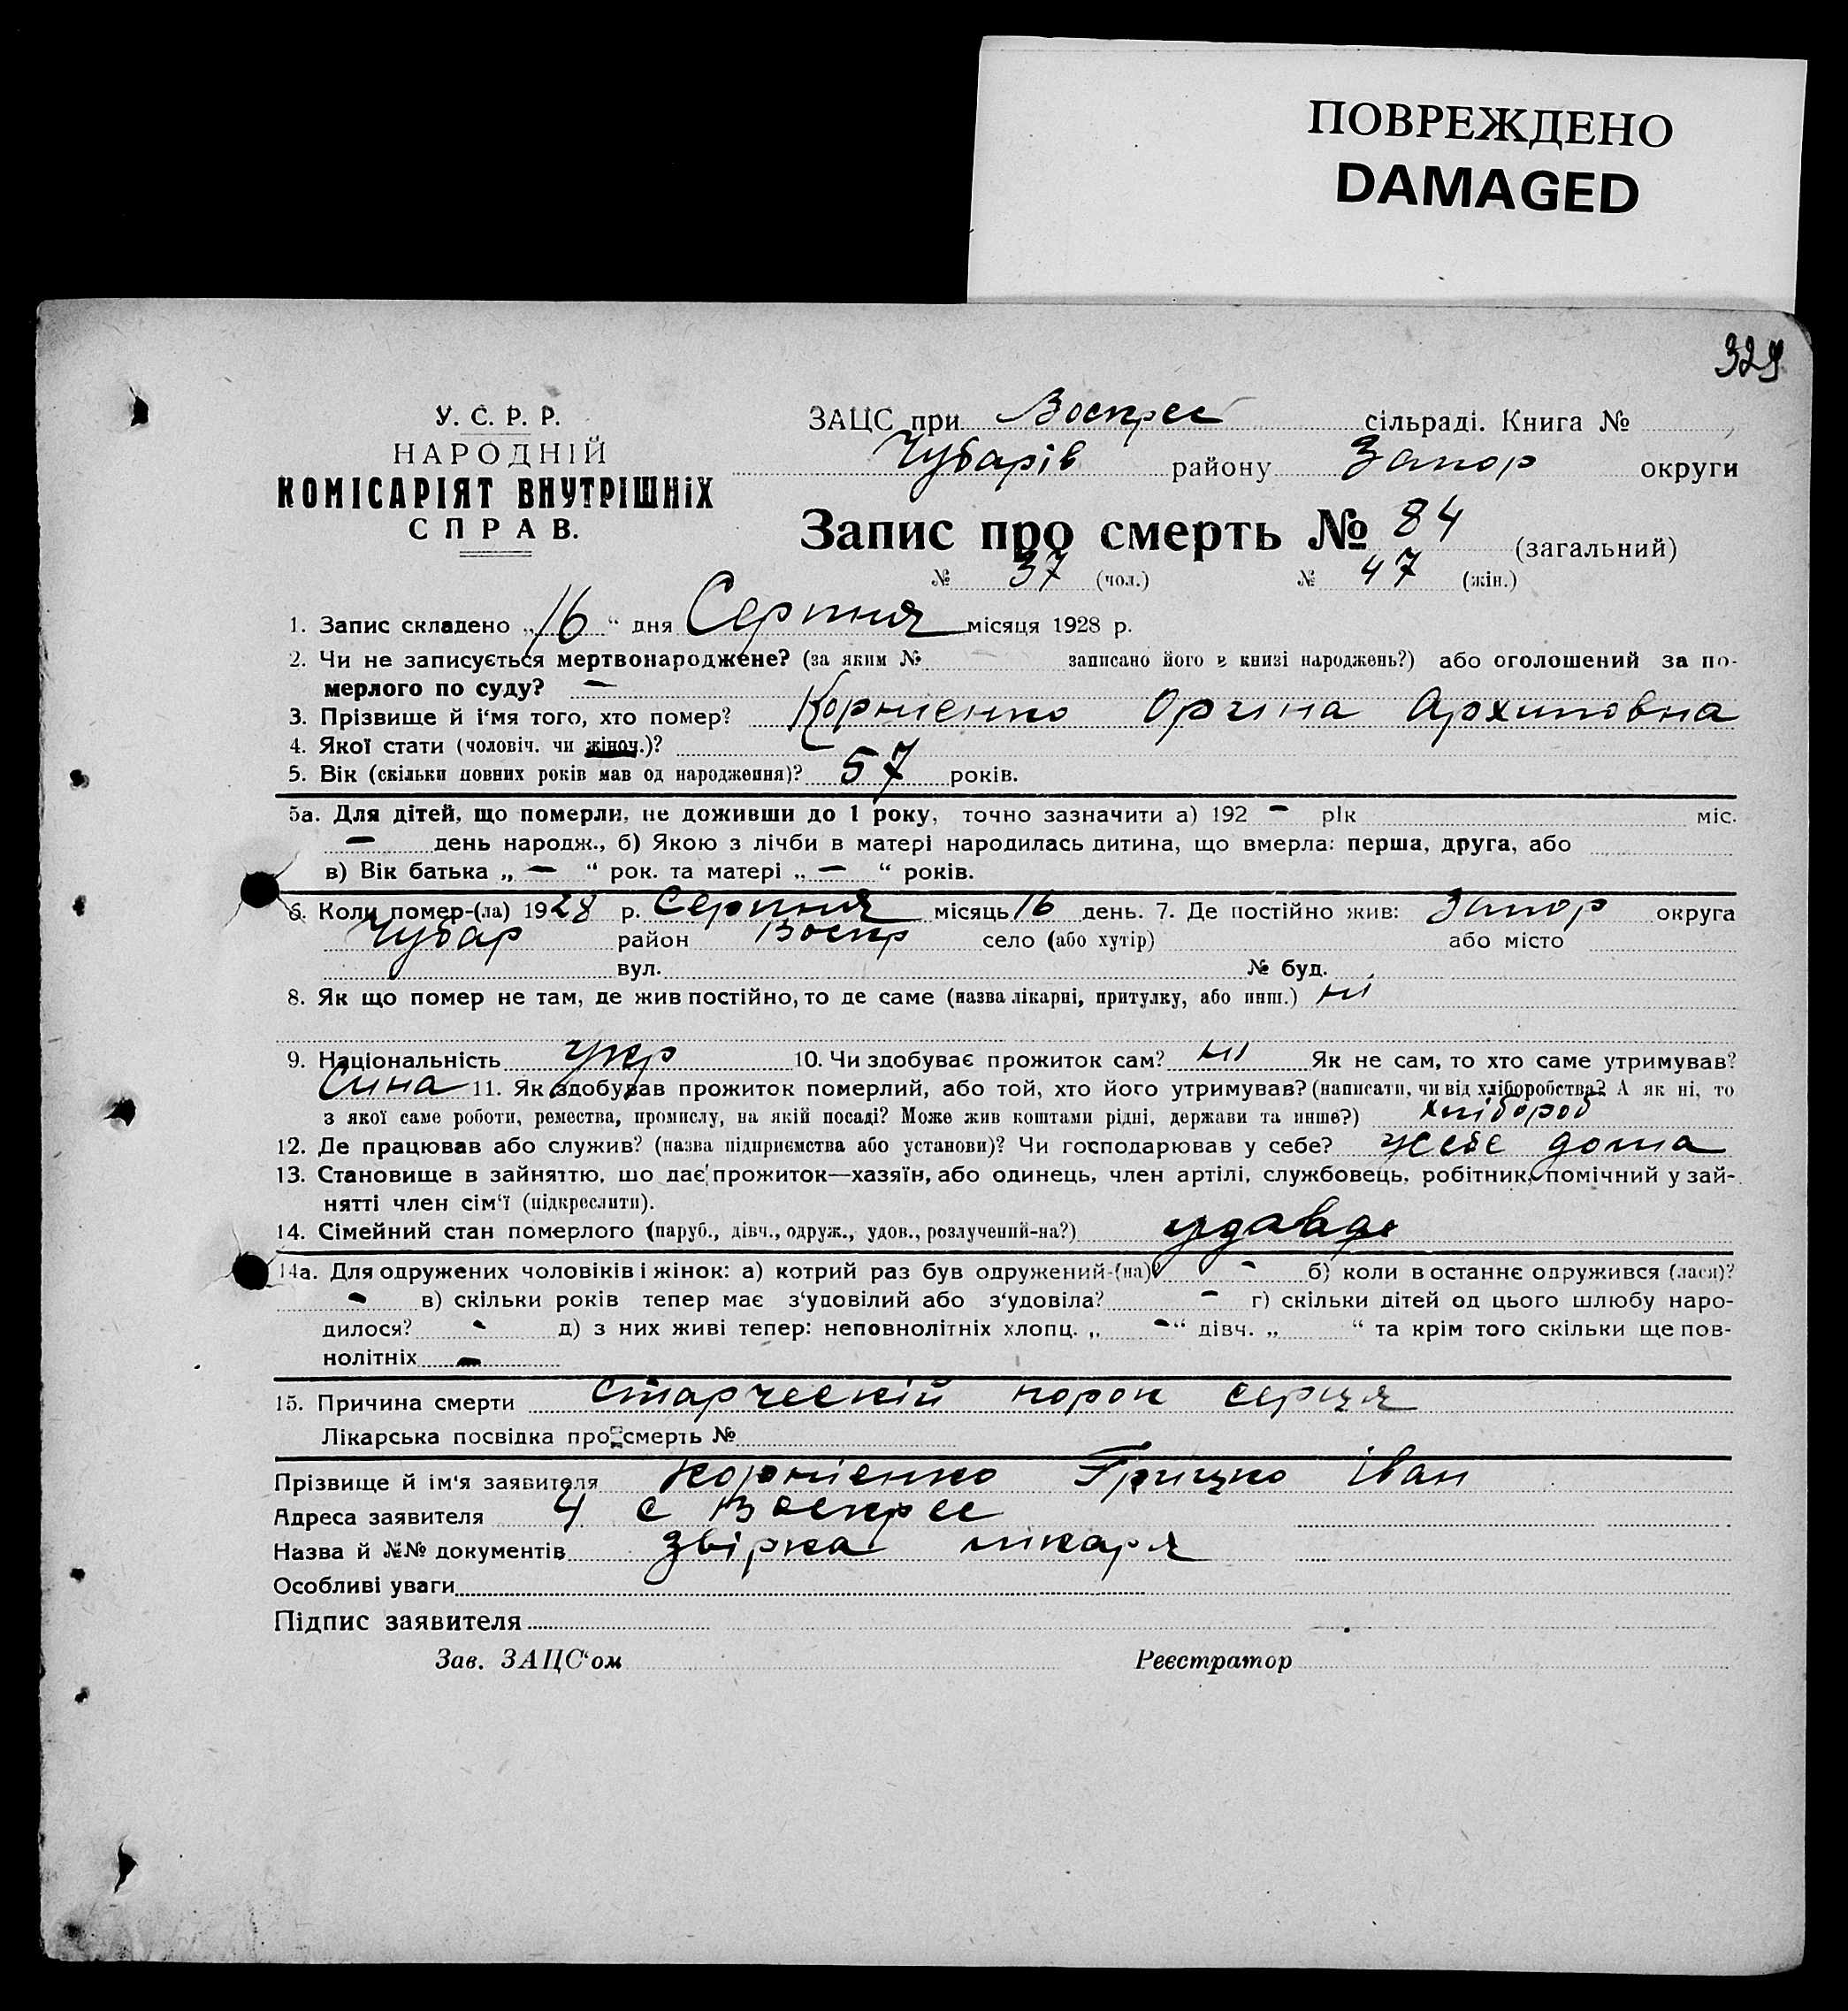 ПОВРЕЖДЕНО
DAMAGED
329
У. С. Р. Р.
НАРОДНІЙ
КОМІСАРІЯТ ВНУТРІШНІХ
СПРАВ.
ЗАЦС при Воскрес сільраді. Книга №
Чубарів району Запор округи
Запис про смерть № 84 (загальний)
№ 37 (чол.) № 47 (жін.)
1. Запис складено „16“ дня Серпня місяця 1928 р.
2. Чи не записується мертвонароджене? (за яким № записано його в книзі народжень?) або оголошений за по-
мерлого по суду? —
3. Прізвище й і‘мя того, хто помер? Корниенко Оріна Архиповна
4. Якої стати (чоловіч. чи жіноч.)?
5. Вік (скільки повних років мав од народження)? 57 років.
5а. Для дітей, що померли, не доживши до 1 року, точно зазначити а) 192 — рік міс.
— день народж., б) Якою з лічби в матері народилась дитина, що вмерла: перша, друга, або
в) Вік батька „ — “ рок. та матері „ — “ років.
6. Коли помер-(ла) 1928 р. Серпня місяць 16 день. 7. Де постійно жив: Запор округа
Чубар район Воскр село (або хутір) або місто
вул. № буд.
8. Як що помер не там, де жив постійно, то де саме (назва лікарні, притулку, або инш.) ні
9. Національність укр 10. Чи здобуває прожиток сам? ні Як не сам, то хто саме утримував?
Сина 11. Як здобував прожиток померлий, або той, хто його утримував? (написати, чи від хліборобства? А як ні, то
з якої саме роботи, ремества, промислу, на якій посаді? Може жив коштами рідні, держави та инше?) хлібороб
12. Де працював або служив? (назва підприємства або установи)? Чи господарював у себе? у себе дома
13. Становище в зайняттю, що дає прожиток—хазяїн, або одинець, член артілі, службовець, робітник, помічний у зай-
нятті член сім‘ї (підкреслити).
14. Сімейний стан померлого (паруб., дівч., одруж., удов., розлучений-на?)
14а. Для одружених чоловіків і жінок: а) котрий раз був одружений-(на)? - б) коли в останнє одружився (лася)?
- в) скільки років тепер має з‘удовілий або з‘удовіла? - г) скільки дітей од цього шлюбу наро-
дилося? - д) з них живі тепер: неповнолітніх хлопц. „ - “ дівч. „ “ та крім того скільки ще пов-
нолітніх -
15. Причина смерти старческій порок серця
Лікарська посвідка про смерть №
Прізвище й ім‘я заявителя Корнієнко Грицко Іван
Адреса заявителя Ч с Воскрес
Назва й №№ документів звірка лікаря
Особливі уваги
Підпис заявителя
Зав. ЗАЦС‘ом Реєстратор